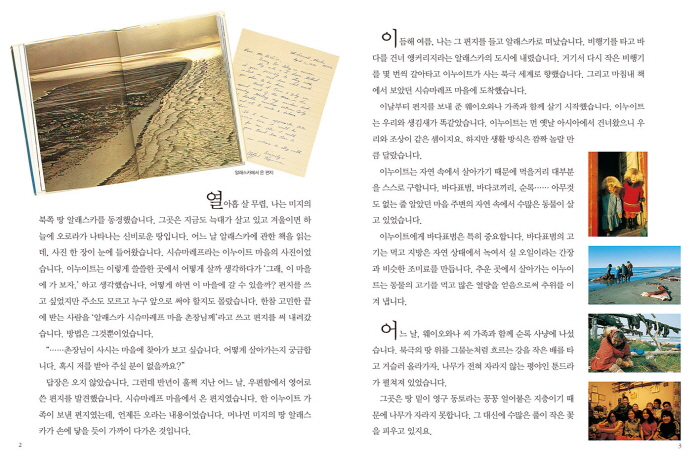 알래스카에서 온 편지
열아홉 살 무렵, 나는 미지의
북쪽 땅 알래스카를 동경했습니다. 그곳은 지금도 늑대가 살고 있고 겨울이면 하
늘에 오로라가 나타나는 신비로운 땅입니다. 어느 날 알래스카에 관한 책을 읽는
데, 사진 한 장이 눈에 들어왔습니다. 시슈마레프라는 이누이트 마을의 사진이었
습니다. 이누이트는 이렇게 쓸쓸한 곳에서 어떻게 살까 생각하다가 '그래, 이 마을
에 가 보자.' 하고 생각했습니다. 어떻게 하면 이 마을에 갈 수 있을까? 편지를 쓰
고 싶었지만 주소도 모르고 누구 앞으로 써야 할지도 몰랐습니다. 한참 고민한 끝
에 받는 사람을 '알래스카 시슈마레프 마을 촌장님께'라고 쓰고 편지를 써 내려갔
습니다. 방법은 그것뿐이었습니다.
"……촌장님이 사시는 마을에 찾아가 보고 싶습니다. 어떻게 살아가는지 궁금합
니다. 혹시 저를 받아 주실 분이 없을까요?"
답장은 오지 않았습니다. 그런데 반년이 훌쩍 지난 어느 날, 우편함에서 영어로
쓴 편지를 발견했습니다. 시슈마레프 마을에서 온 편지였습니다. 한 이누이트 가
족이 보낸 편지였는데, 언제든 오라는 내용이었습니다. 머나먼 미지의 땅 알래스
카가 손에 닿을 듯이 가까이 다가온 것입니다.
2
이듬해 여름, 나는 그 편지를 들고 알래스카로 떠났습니다. 비행기를 타고 바
다를 건너 앵커리지라는 알래스카의 도시에 내렸습니다. 거기서 다시 작은 비행기
를 몇 번씩 갈아타고 이누이트가 사는 북극 세계로 향했습니다. 그리고 마침내 책
에서 보았던 시슈마레프 마을에 도착했습니다.
이날부터 편지를 보내 준 웨이오와나 가족과 함께 살기 시작했습니다. 이누이트
는 우리와 생김새가 똑같았습니다. 이누이트는 먼 옛날 아시아에서 건너왔으니 우
리와 조상이 같은 셈이지요. 하지만 생활 방식은 깜짝 놀랄 만
큼 달랐습니다.
이누이트는 자연 속에서 살아가기 때문에 먹을거리 대부분
을 스스로 구합니다. 바다표범, 바다코끼리, 순록…… 아무것
도 없는 줄 알았던 마을 주변의 자연 속에서 수많은 동물이 살
고 있었습니다.
이누이트에게 바다표범은 특히 중요합니다. 바다표범의 고
기는 먹고 지방은 자연 상태에서 녹여서 실 오일이라는 간장
과 비슷한 조미료를 만듭니다. 추운 곳에서 살아가는 이누이
트는 동물의 고기를 먹고 많은 열량을 얻음으로써 추위를 이
겨 냅니다.
어느 날, 웨이오와나 씨 가족과 함께 순록 사냥에 나섰
습니다. 북극의 땅 위를 그물눈처럼 흐르는 강을 작은 배를 타
고 거슬러 올라가자, 나무가 전혀 자라지 않는 평야인 툰드라
가 펼쳐져 있었습니다.
그곳은 땅 밑이 영구 동토라는 꽁꽁 얼어붙은 지층이기 때
문에 나무가 자라지 못합니다. 그 대신에 수많은 풀이 작은 꽃
을 피우고 있지요.
3